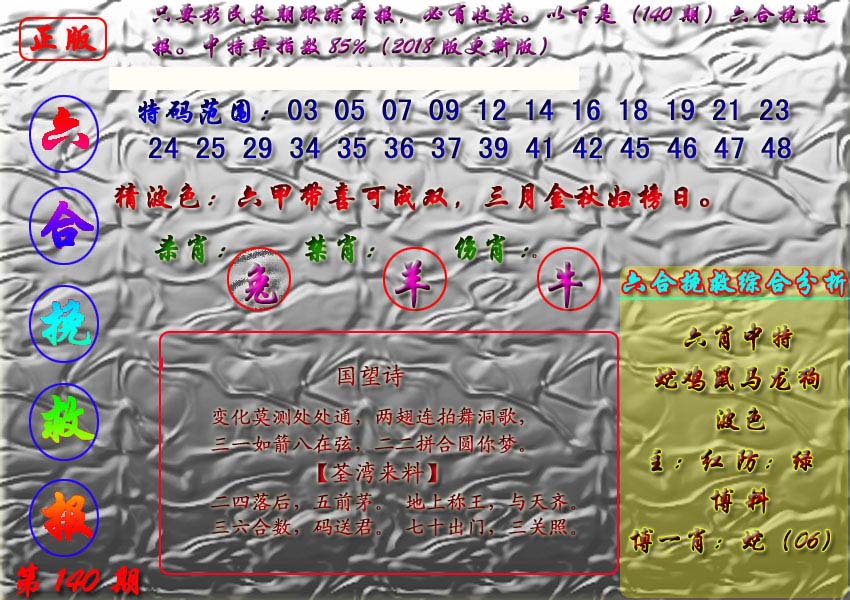 正版
只要彩民长期跟踪本报，必有收获。以下是（140 期）六合挽救
报。中特率指数 85%（2018 版更新版）
六合挽救报
第 140 期
特码范围：03 05 07 09 12 14 16 18 19 21 23
24 25 29 34 35 36 37 39 41 42 45 46 47 48
猜波色：六甲带喜可成双，三月金秋妞榜日。
杀肖：兔 禁肖：羊 伤肖：牛
国望诗
变化莫测处处通，两翅连拍舞洞歌，
三一如箭八在弦，二二拼合圆你梦。
【荃湾来料】
二四落后，五前茅。 地上称王，与天齐。
三六合数，码送君。 七十出门，三关照。
六合挽救综合分析
六肖中特
蛇鸡鼠马龙狗
波色
主：红 防：绿
博料
博一肖：蛇（06）